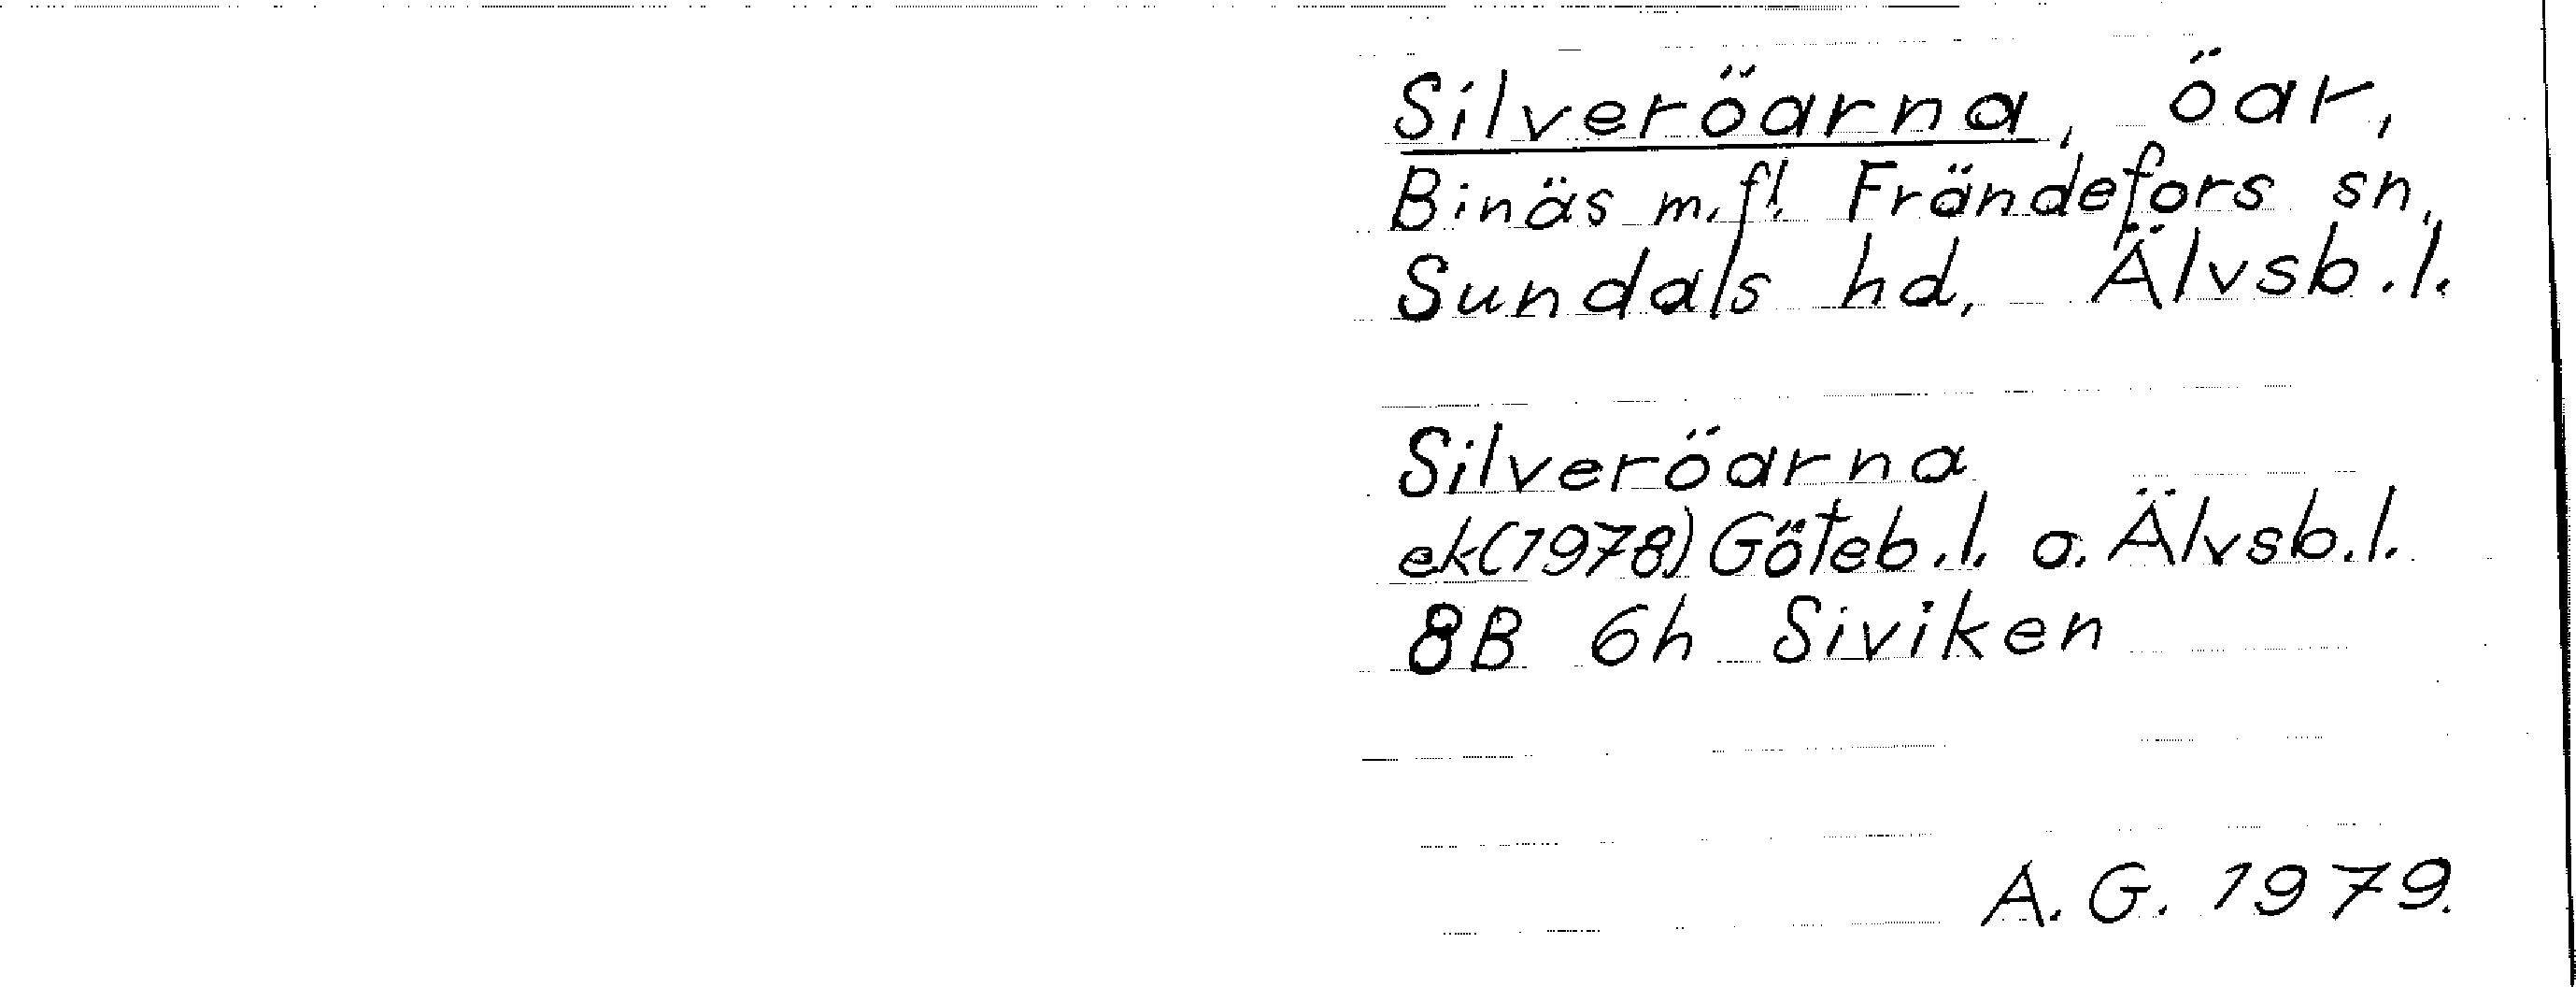 Silveröarna, öar,
Binäs m.fl. Frändefors sn,
Sundals hd, Älvsb.l.
Silveröarna
ek(1978) Göteb.l. o. Älvsb.l.
8B 6h Siviken
A.G. 1979.